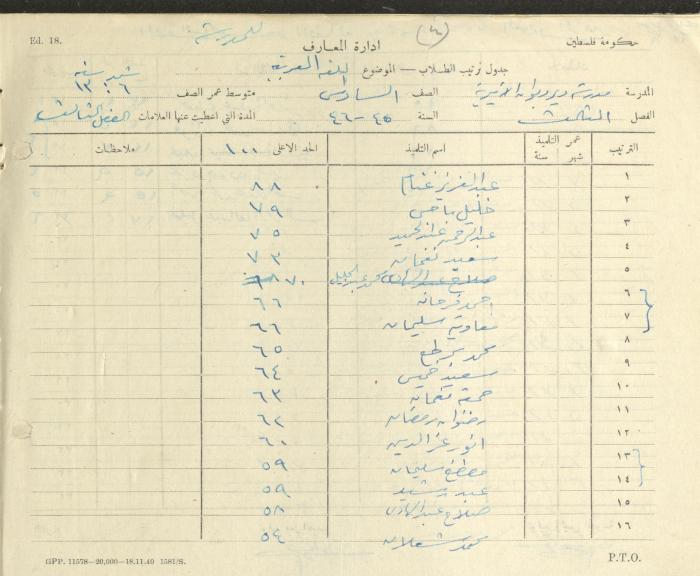 Ed. 18.
للمدرسة
(٤)
حكومة فلسطين
ادارة المعارف
جدول ترتيب الطلاب — الموضوع اللغة العربية
المدرسة مدرسة ديرديوان الاميرية الصف السادس متوسط عمر الصف شهر سنة ٦ ١٣
الفصل الثالث السنة ٤٥-٤٦ المدة التي اعطيت عنها العلامات الفصل الثالث
الترتيب عمر التلميذ شهر سنة اسم التلميذ الحد الاعلى ١٠٠ ملاحظات
١ عبد العزيز غنام ٨٨
٢ خليل ٧٩
٣ عبد الرحمن عبد الحميد ٧٥
٤ سعيد نعمان ٧٣
٥ صلاح عبد الهادي محمد عبد الجليل ٧٠
٦ احمد فرحان ٦٦
٧ معاوية سليمان ٦٦
٨ محمد ٦٥
٩ سعيد خميس ٦٤
١٠ جمعة نعمان ٦٣
١١ رضوان رمضان ٦٢
١٢ انور عز الدين ٦٠
١٣ مصطفى سليمان ٥٩
١٤ عبد رشيد ٥٩
١٥ صلاح عبد الهادي ٥٨
١٦ محمد شعلان ٥٤
GPP. 11578—20,000—18.11.40 1581/S.
P.T.O.